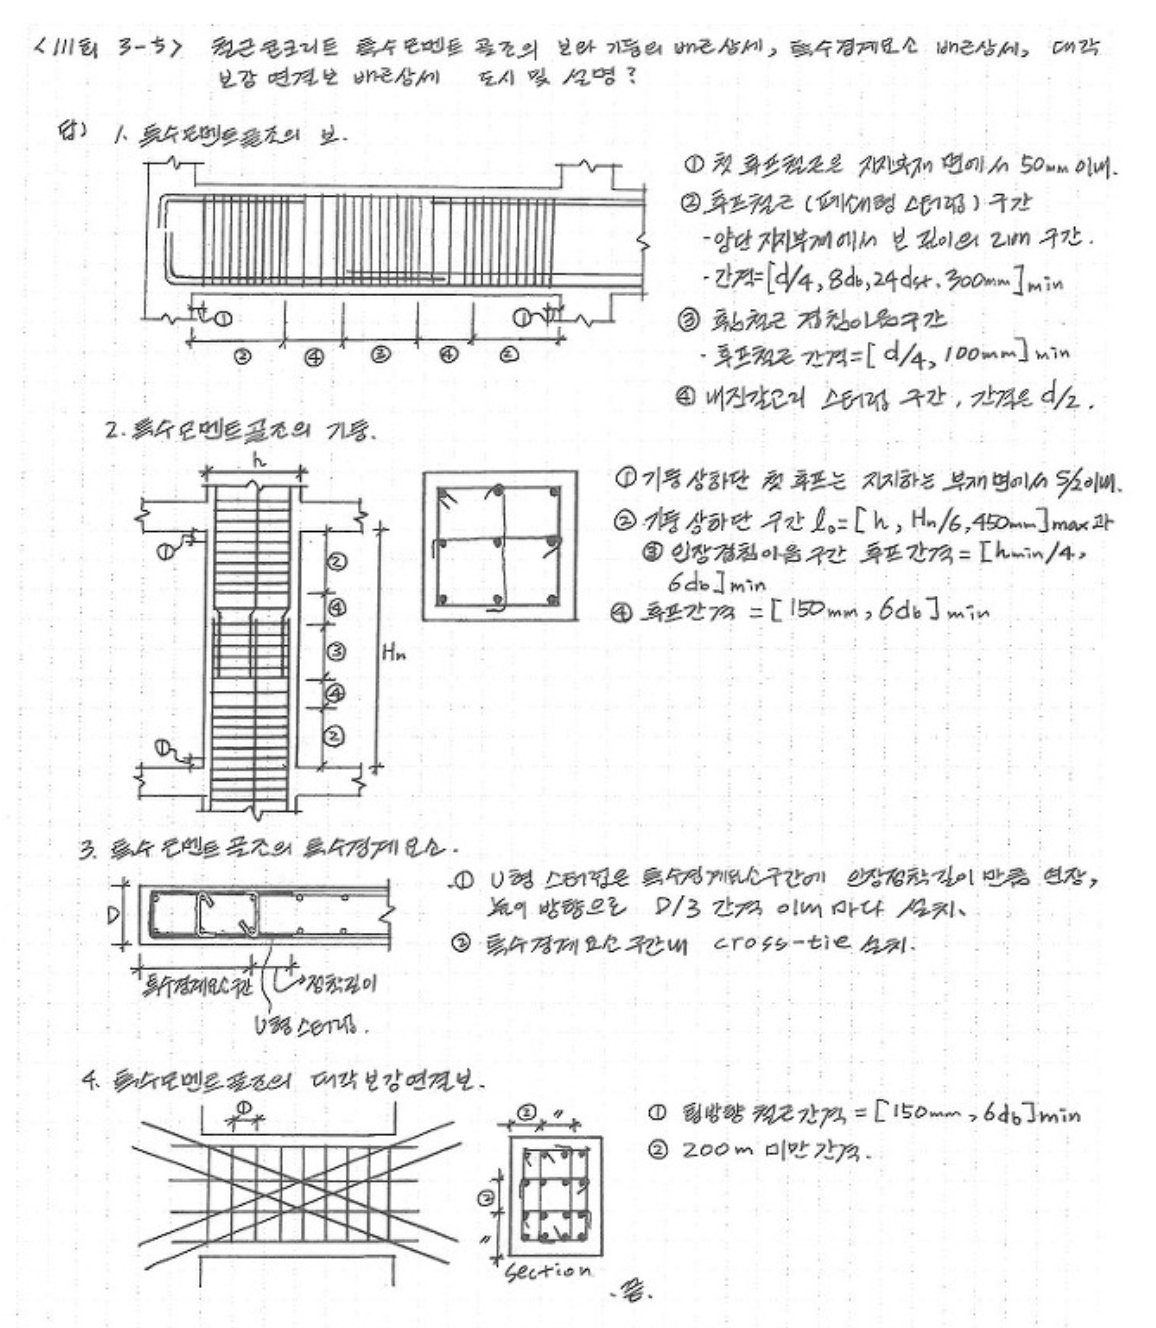 <111회 3-5> 철근콘크리트 특수모멘트 골조의 보와 기둥의 배근상세, 특수경계요소 배근상세, 대각
보강 연결보 배근상세 도시 및 설명?
답) 1. 특수모멘트골조의 보.
① 첫 후프철근은 지지부재 면에서 50mm 이내.
② 후프철근 (폐쇄형 스터럽) 구간
- 양단 지지부재에서 보 깊이의 2배 구간.
- 간격=[d/4, 8db, 24dst, 300mm]min
③ 휨철근 겹침이음구간
· 후프철근 간격=[d/4, 100mm]min
④ 내진갈고리 스터럽 구간, 간격은 d/2.
① ①
② ④ ③ ④ ②
2. 특수모멘트골조의 기둥.
h
① 기둥 상하단 첫 후프는 지지하는 부재면에서 S/2이내.
② 기둥 상하단 구간 lo=[h, Hn/6, 450mm]max과
③ 인장겹침이음 구간 후프간격=[hmin/4,
6db]min
④ 후프간격 = [150mm, 6db]min
①
②
④
③
Hn
④
①
②
3. 특수모멘트 골조의 특수경계요소.
D
① U형 스터럽은 특수경계요소구간에 인장정착길이 만큼 연장,
높이 방향으로 D/3 간격 이내 마다 설치.
② 특수경계요소구간내 cross-tie 설치.
특수경계요소구간
정착길이
U형스터럽.
4. 특수모멘트골조의 대각보강연결보.
①
② 〃
②
〃
section
① 횡방향 철근간격 = [150mm, 6db]min
② 200m 미만간격.
-끝.